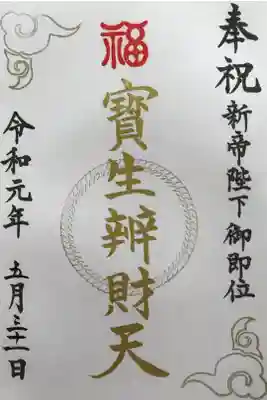 奉祝 新帝陛下御即位
福
寶生辨財天
令和元年 五月三十一日